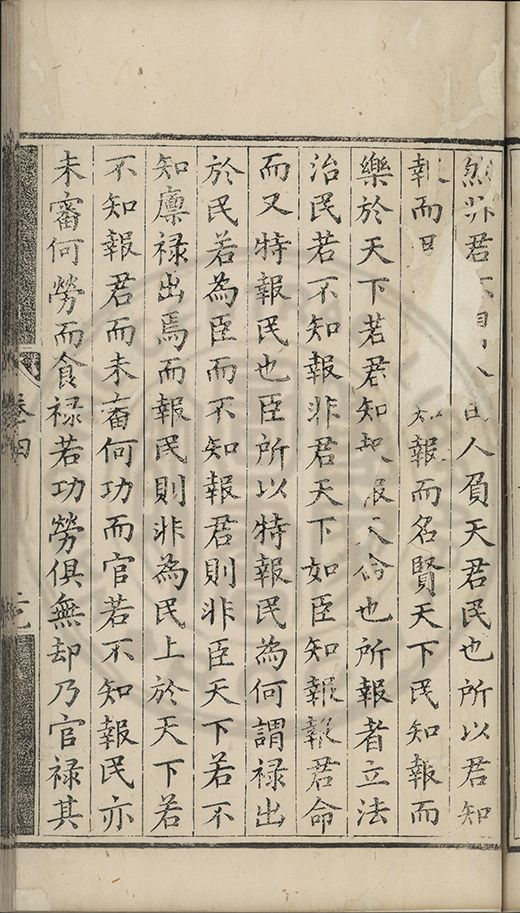 然非君不 人 人頁天君民也所以君知
報而 報而名賢天下民知報而
樂於天下若君知 報 也所報者立法
治民若不知報非君天下如臣知報報君命
而又特報民也臣所以特報民為何謂禄出
於民若為臣而不知報君則非臣天下若不
知廩禄出焉而報民則非為民上於天下若
不知報君而未審何功而官若不知報民亦
未審何勞而食禄若功勞俱無却乃官禄其
卷四